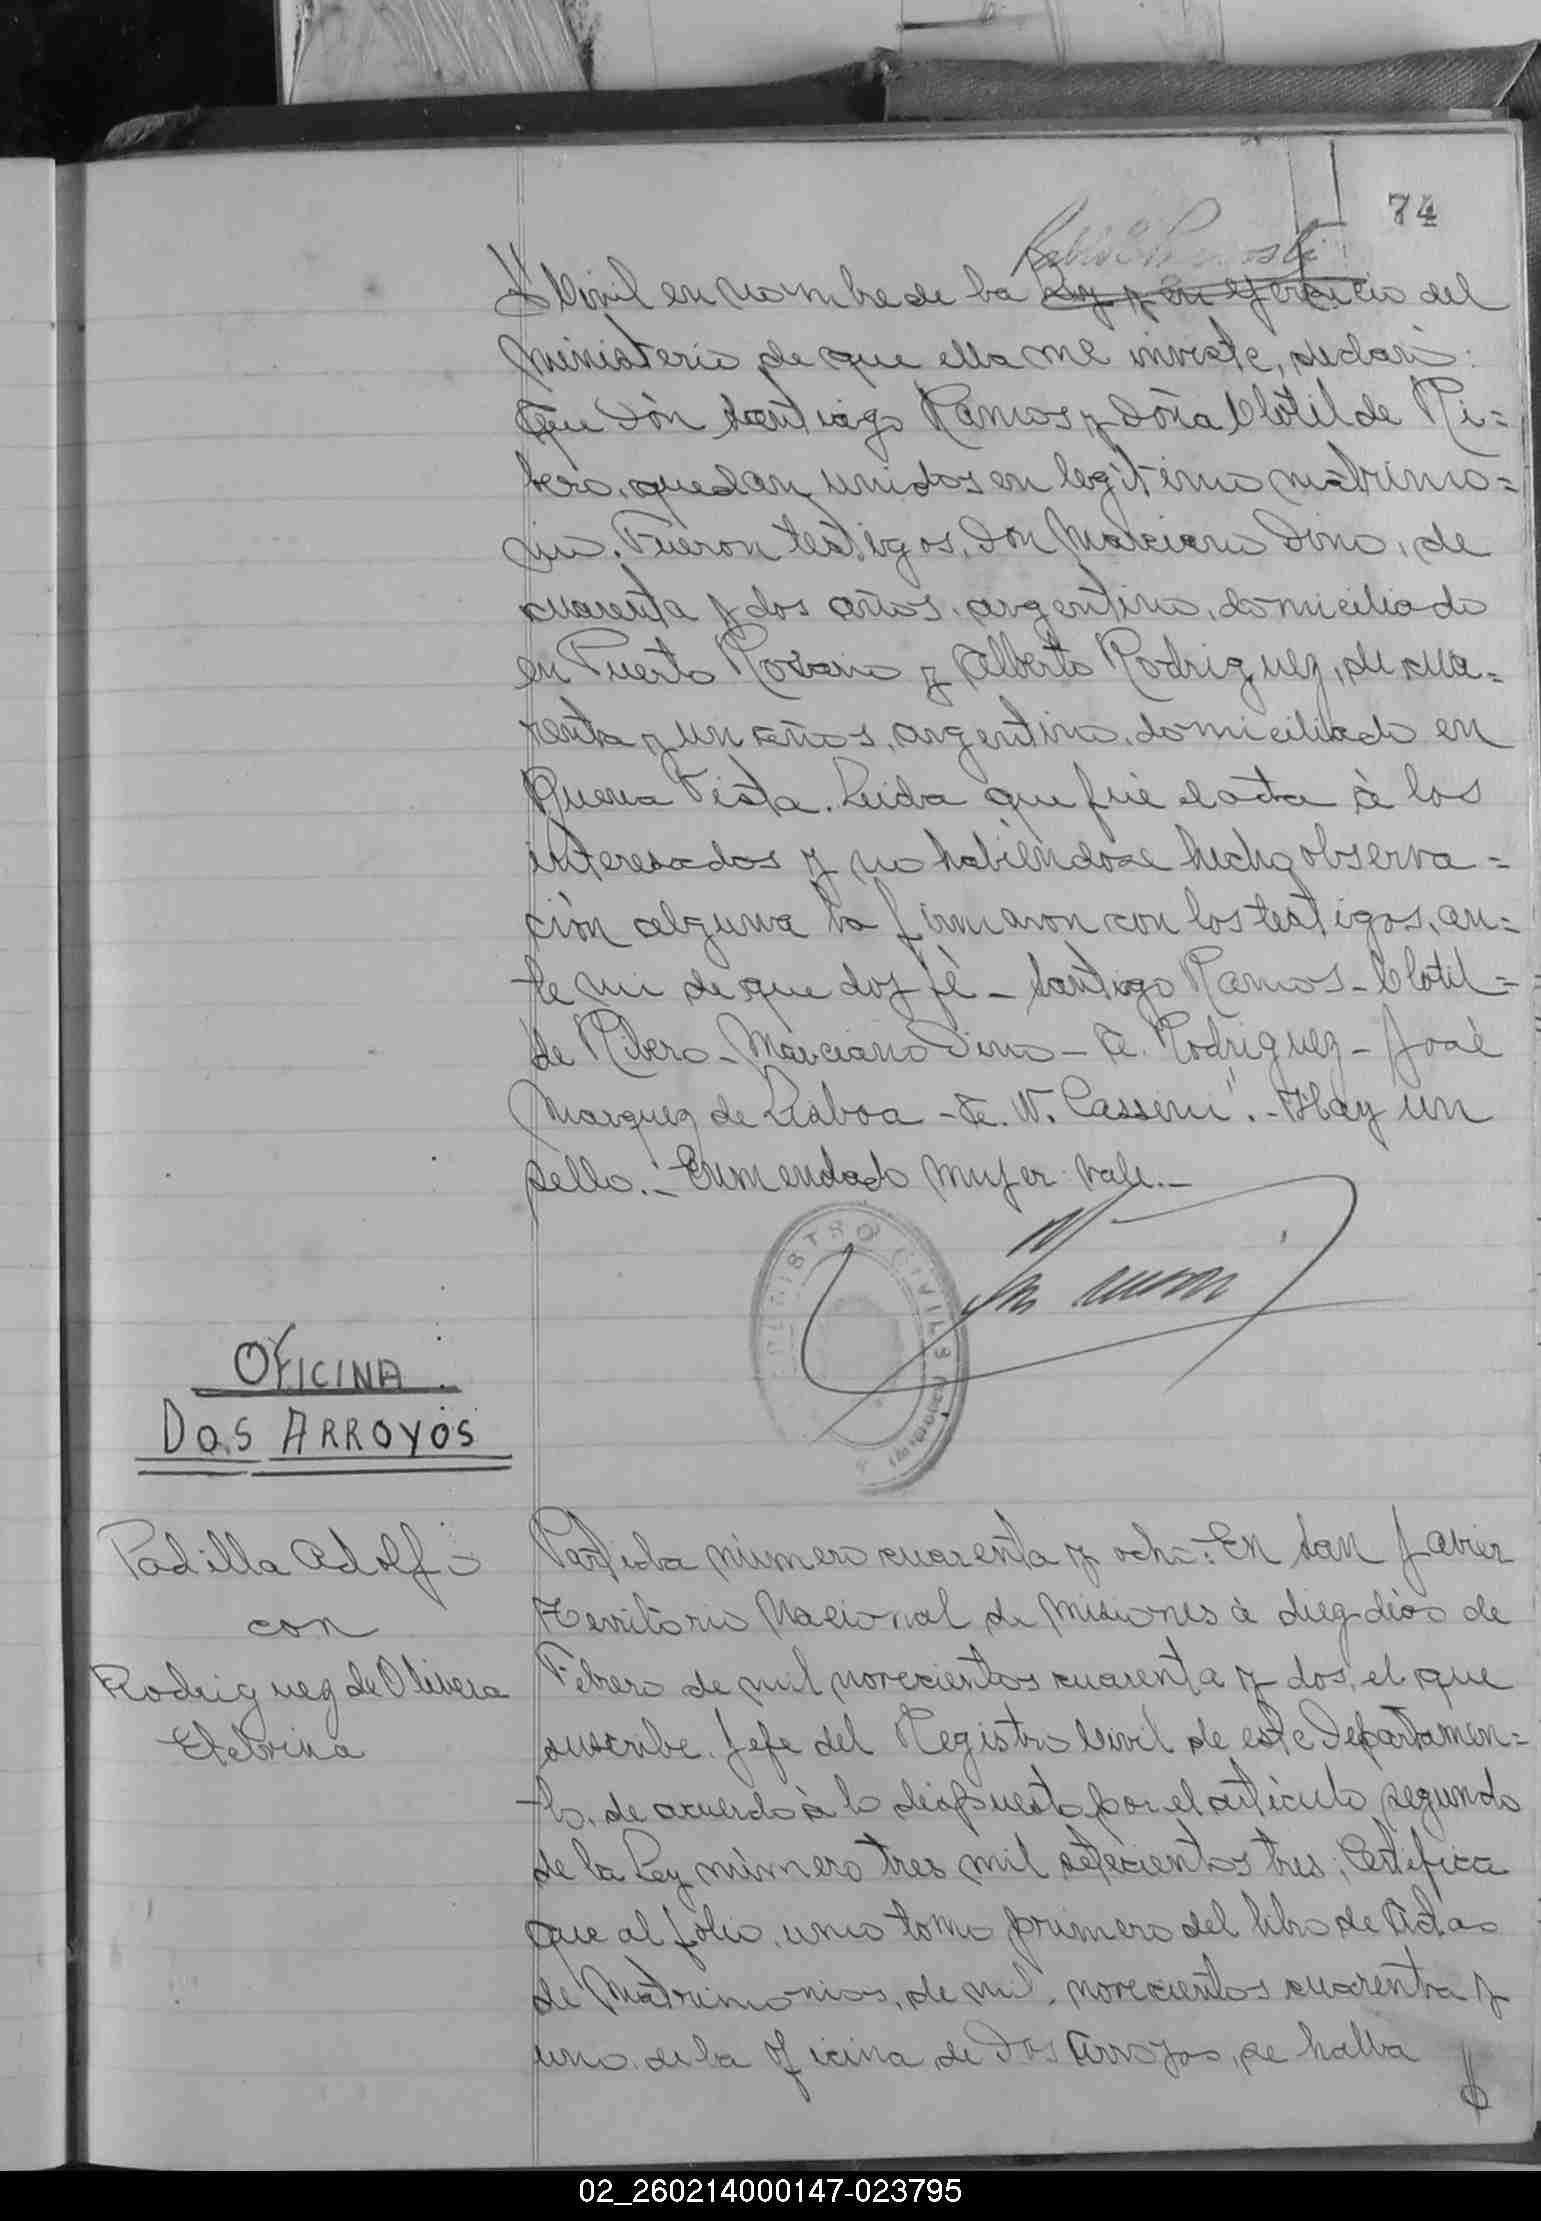 74
Civil en nombre de la Ley y en ejercicio del
Ministerio de que ella me inviste, declaró:
Que Dón Santiago Ramos y Doña Clotilde Ri=
bero, quedan unidos en legítimo matrimo=
nio. Fueron testigos, Don Marciano Dino, de
cuarenta y dos años, argentino, domiciliado
en Puerto Rosario y Alberto Rodriguez, de cua=
renta y un años, argentino, domiciliado en
Buena Vista. Leida que fué el acta á los
interesados y no habiéndose hecho observa=
ción alguna la firmaron con los testigos, an=
te mi de que doy fé - Santiago Ramos - Clotil=
de Ribero - Marciano Dino - A. Rodriguez - José
Marquez de Lisboa - A. N. Casseni". - Hay un
sello. - Enmendado mujer: vale. -
REGISTRO CIVIL
OFICINA
DOS ARROYOS
Padilla Adolfo
con
Rodriguez de Olivera
Etelvina
Partida número cuarenta y ocho: En San Javier
Territorio Nacional de Misiones á diez dias de
Febrero de mil novecientos cuarenta y dos, el que
suscribe, Jefe del Registro Civil de este Departamen=
to, de acuerdo á lo dispuesto por el artículo segundo
de la Ley número tres mil setecientos tres; Certifica
que al folio, uno tomo primero del libro de Actas
de Matrimonios, de mil, novecientos cuarenta y
uno, de la oficina de Dos Arroyos, se halla
02_260214000147-023795